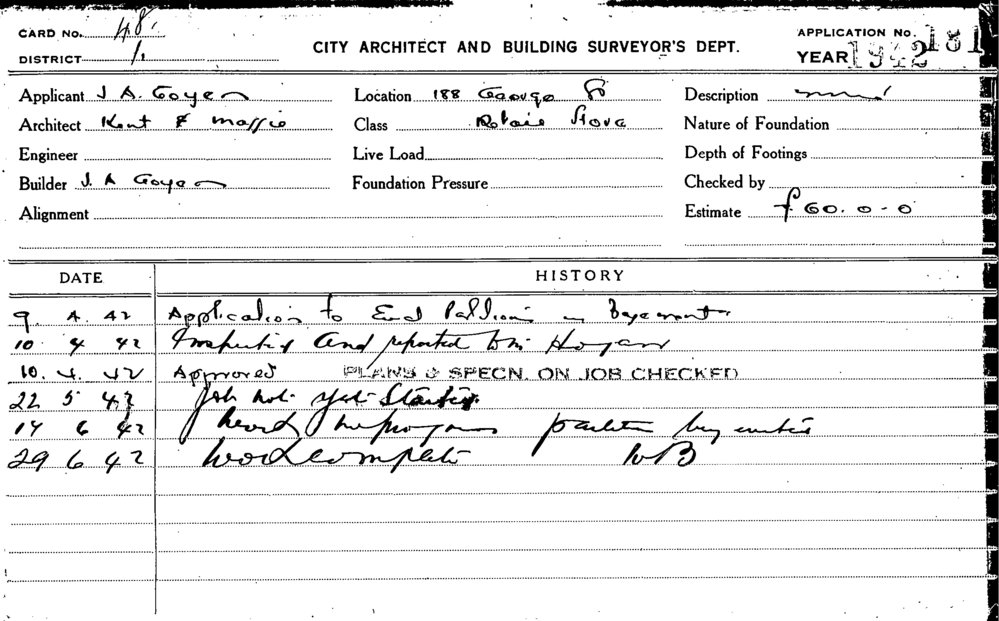 CARD No. 48.
DISTRICT 1.
CITY ARCHITECT AND BUILDING SURVEYOR'S DEPT.
APPLICATION No. 181
YEAR 1942
Applicant J A. Goyen
Location 188 George St
Description
Architect Kent & Massie
Class Retail Store
Nature of Foundation
Engineer
Live Load
Depth of Footings
Builder J. A Goyen
Foundation Pressure
Checked by
Alignment
Estimate £60.0-0
DATE HISTORY
9. 4. 42 Application to Partition in Basement
10 4 42 and reported Hogan
10. 4. 42 Approved PLANS & SPECN. ON JOB CHECKED
22 5 42 Job not yet Started
14 6 42 Work in progress partition being
29 6 42 Work complete WB